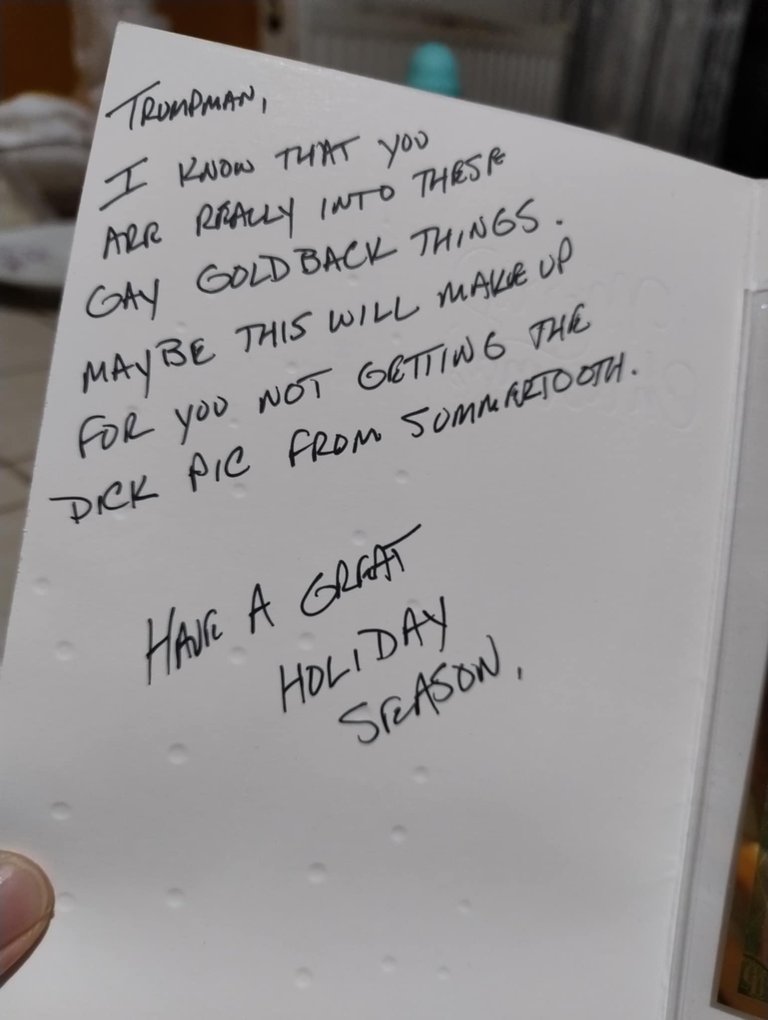 TRUMPMAN,
I KNOW THAT YOU
ARE REALLY INTO THESE
GAY GOLDBACK THINGS.
MAYBE THIS WILL MAKE UP
FOR YOU NOT GETTING THE
DICK PIC FROM SUMMERTOOTH.
HAVE A GREAT
HOLIDAY
SEASON,